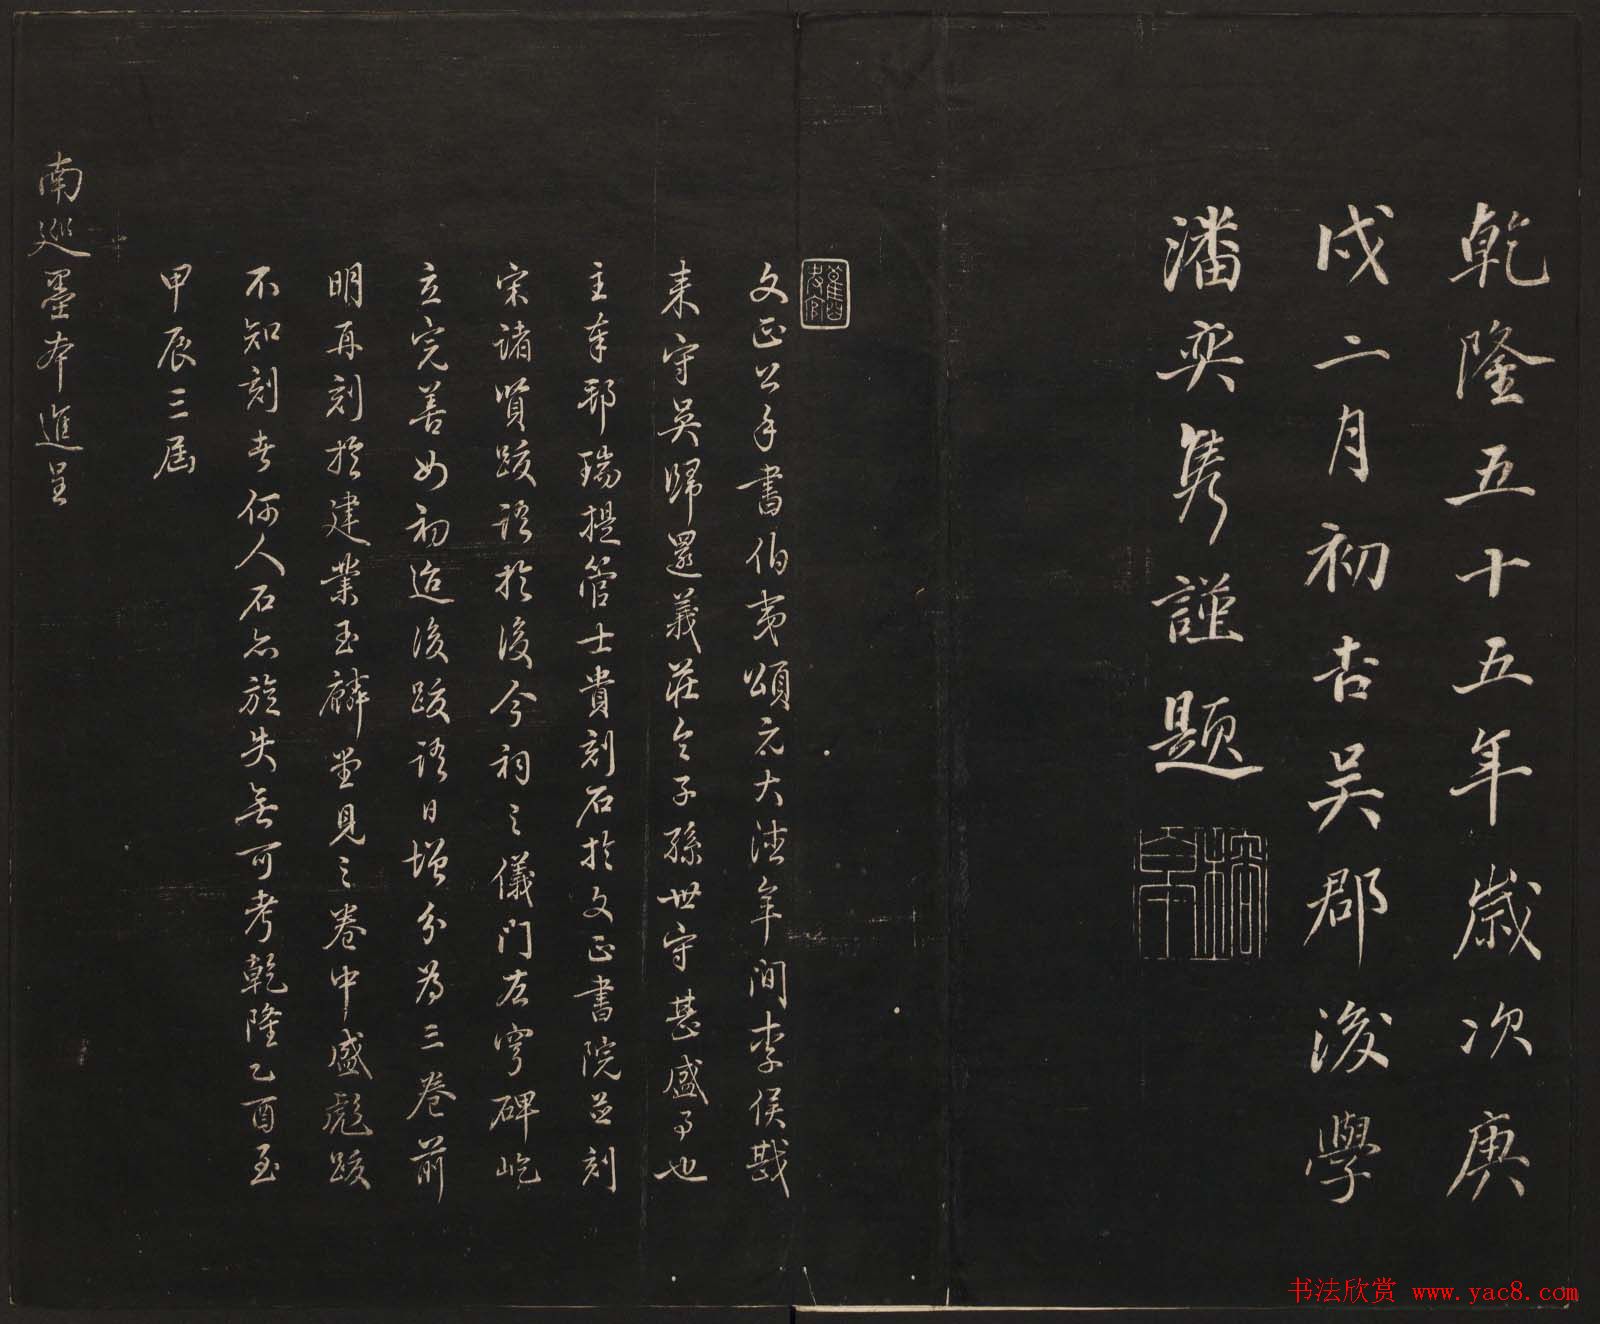 乾隆五十五年歲次庚
戌二月初吉吳郡後學
潘奕雋謹題
文正公手書伯夷頌元大德年間李侯戡
来守吳歸還義莊令子孫世守甚盛事也
主奉邦瑞提管士貴刻石於文正書院並刻
宋諸賢跋語於後今祠之儀門左穹碑屹
立完善如初迨後跋語日增分為三卷前
明再刻於建業玉麟堂見之卷中盛彪跋
不知刻者何人石亦旋失無可考乾隆乙酉至
甲辰三屆
南巡墨本進呈
书法欣赏 www.yac8.com